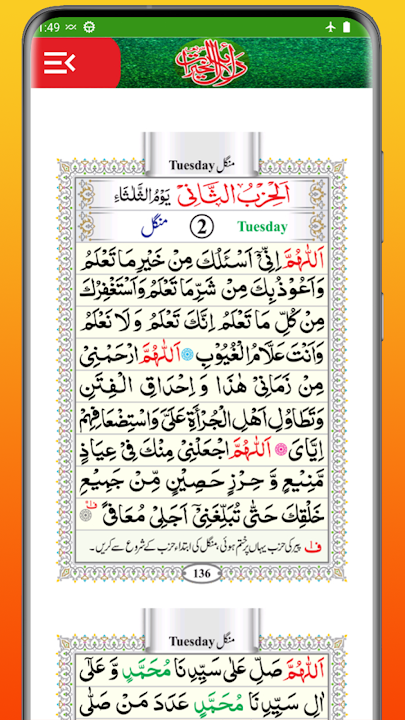 1:49
دلائل الخیرات
Tuesday منگل
اَلْحِزْبُ الثَّانِیْ یَوْمُ الثُّلَاثَاءِ
منگل 2 Tuesday
اَللّٰهُمَّ اِنِّیْۤ اَسْئَلُكَ مِنْ خَیْرِ مَا تَعْلَمُ
وَاَعُوْذُ بِكَ مِنْ شَرِّ مَا تَعْلَمُ وَاَسْتَغْفِرُكَ
مِنْ كُلِّ مَا تَعْلَمُ اِنَّكَ تَعْلَمُ وَلَا نَعْلَمُ
وَاَنْتَ عَلَّامُ الْغُیُوْبِ اَللّٰهُمَّ ارْحَمْنِیْ
مِنْ زَمَانِیْ هٰذَا وَ اِحْدَاقِ الْفِتَنِ
وَتَطَاوُلِ اَهْلِ الْجُرْأَةِ عَلَیَّ وَاسْتِضْعَافِهِمْ
اِیَّایَ اَللّٰهُمَّ اجْعَلْنِیْ مِنْكَ فِیْ عِیَاذٍ
مَّنِیْعٍ وَّ حِرْزٍ حَصِیْنٍ مِّنْ جَمِیْعِ
خَلْقِكَ حَتّٰی تُبَلِّغَنِیْۤ اَجَلِیْ مُعَافًی ف۱
ف۱ پیر کی حزب یہاں پر ختم ہوئی، منگل کی ابتداء حزب کے شروع سے کریں۔
136
Tuesday منگل
اَللّٰهُمَّ صَلِّ عَلٰی سَیِّدِنَا مُحَمَّدٍ وَّ عَلٰۤی
اٰلِ سَیِّدِنَا مُحَمَّدٍ عَدَدَ مَنْ صَلّٰی